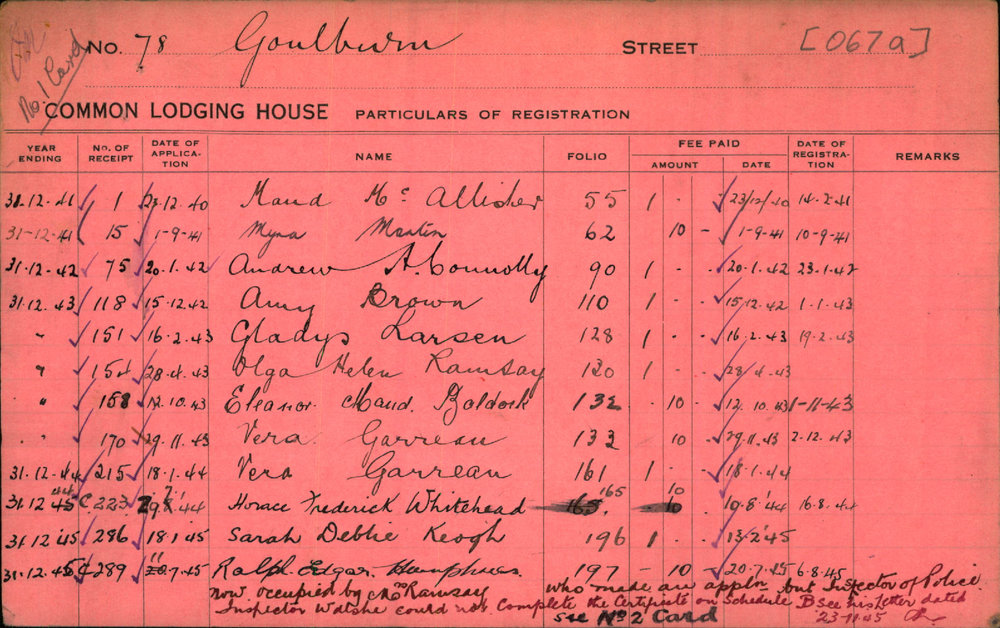 No. 78 Goulburn STREET [067a]
No 1 Card
COMMON LODGING HOUSE PARTICULARS OF REGISTRATION
YEAR ENDING NO. OF RECEIPT DATE OF APPLICA-TION NAME FOLIO FEE PAID AMOUNT DATE DATE OF REGISTRA-TION REMARKS
31.12.41 1 12.40 Maud Mc Allister 55 1 - - 23/12/40 14.2.41
31-12-41 15 1-9-41 Myra Martin 62 10 - 1-9-41 10-9-41
31.12.42 75 20.1.42 Andrew A. Connolly 90 1 - - 20.1.42 23.1.42
31.12.43 118 15.12.42 Amy Brown 110 1 - - 15.12.42 1-1-43
" 151 16.2.43 Gladys Larsen 128 1 - - 16.2.43 19.2.43
" 154 28.4.43 Olga Helen Ramsay 130 1 - - 28.4.43
" 158 12.10.43 Eleanor Maud Baldock 132 10 - 12.10.43 1-11-43
" 170 29.11.43 Vera Garreau 133 10 - 29.11.43 2.12.43
31.12.44 215 18.1.44 Vera Garreau 161 1 - - 18.1.44
31.12.45 44 223 Horace Frederick Whitehead 165 10 10.8.44 16.8.44
31.12.45 286 18.1.45 Sarah Debbie Keogh 196 1 - 13.2.45
31.12.45 289 7.45 Ralph Edgar Humphries 197 - 10 - 20.7.45 6.8.45
now occupied by Mrs Ramsay who made an appln. but Inspector of Police
Inspector could not Complete the Certificate on Schedule B see his letter dated
23-11-45
see No 2 Card